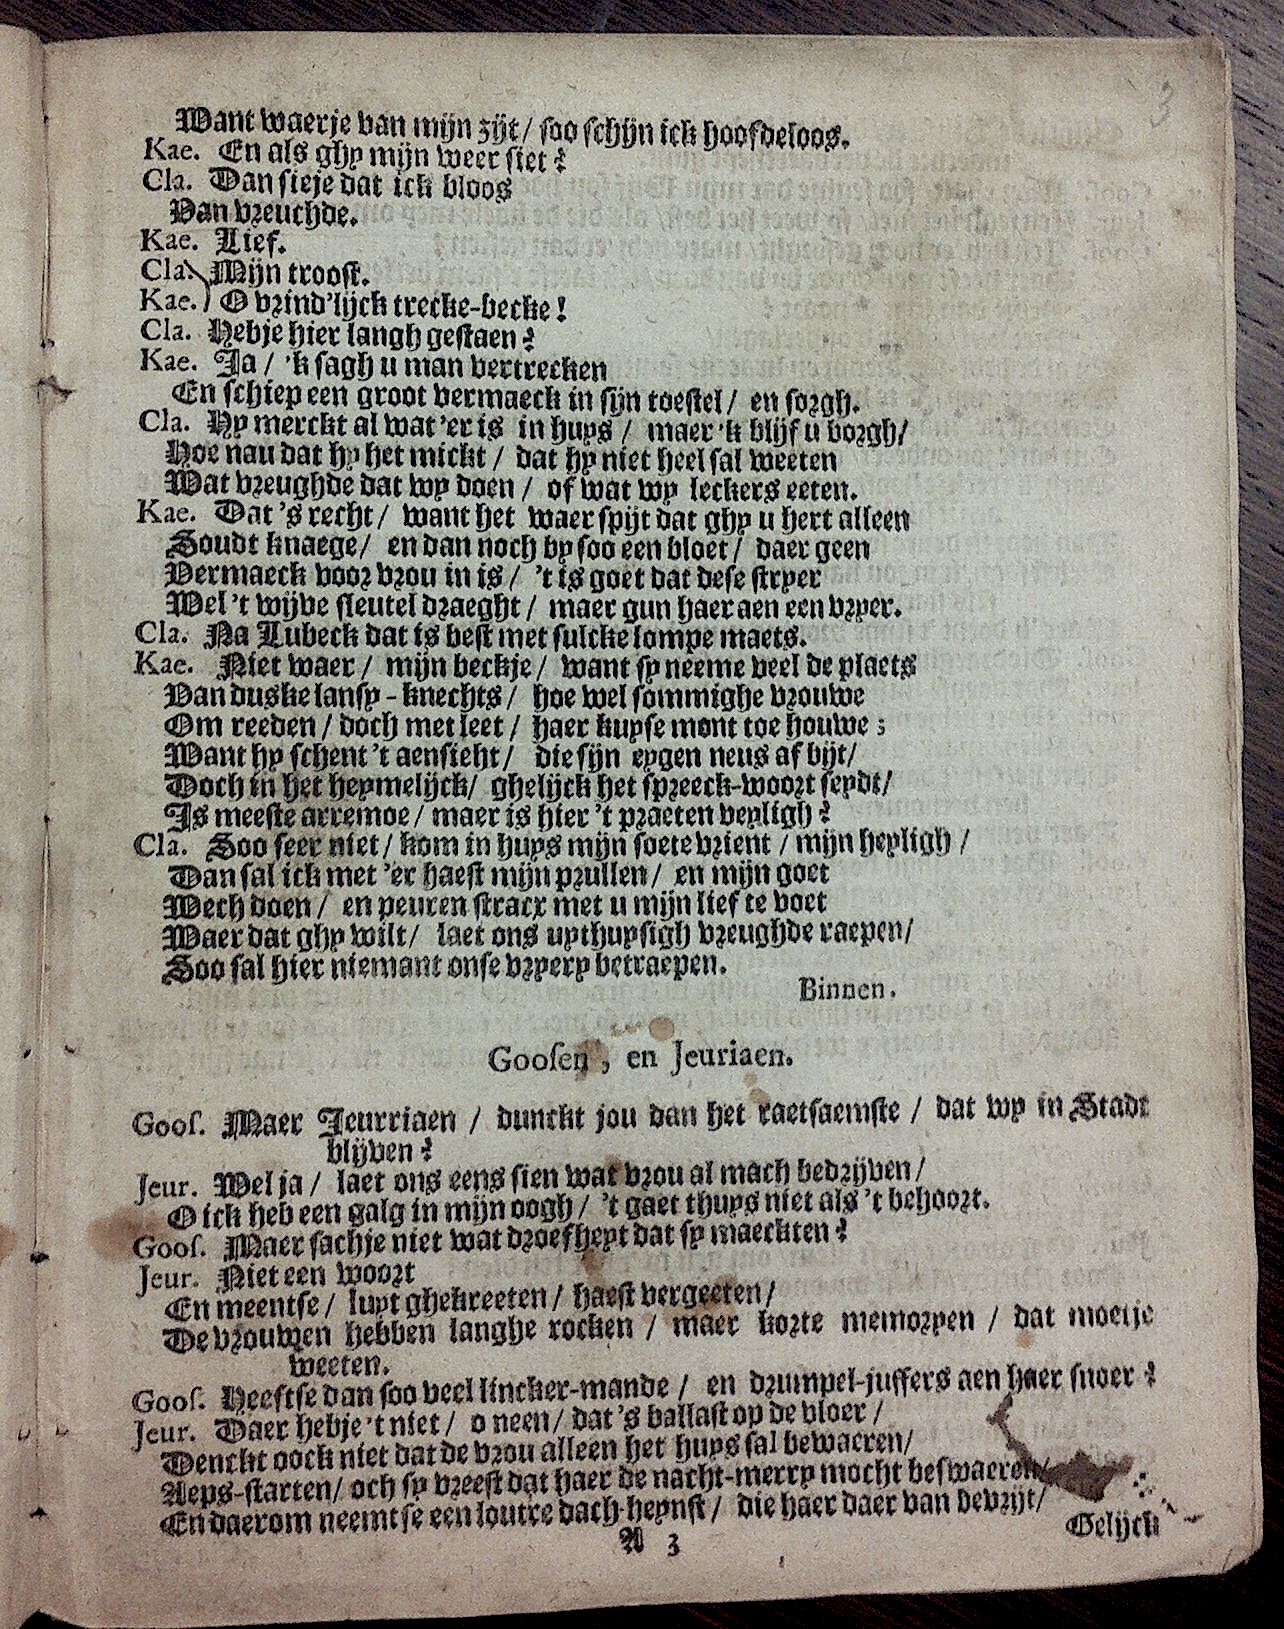 3
Want waerje van mijn zijt / soo schijn ick hoofdeloos.
Kae. En als ghy mijn weer siet?
Cla. Dan sieje dat ick bloos
Van vreuchde.
Kae. Lief.
Cla. Mijn troost.
Kae. O vrind'lijck trecke-becke!
Cla. Hebje hier langh gestaen?
Kae. Ja / 'k sagh u man vertrecken
En schiep een groot vermaeck in sijn toestel / en sorgh.
Cla. Hy merckt al wat 'er is in huys / maer 'k blijf u borgh/
Hoe nau dat hy het mickt / dat hy niet heel sal weeten
Wat vreughde dat wy doen / of wat wy leckers eeten.
Kae. Dat 's recht / want het waer spijt dat ghy u hert alleen
Soudt knaege / en dan noch by soo een bloet / daer geen
Vermaeck voor vrou in is / 't is goet dat dese stryer
Wel 't wijve sleutel draeght / maer gun haer aen een vryer.
Cla. Na Lubeck dat is best met sulcke lompe maets.
Kae. Niet waer / mijn beckje / want sy neeme veel de plaets
Van duske lansy-knechts / hoe wel sommighe vrouwe
Om reeden / doch met leet / haer kuyse mont toe houwe;
Want hy schent 't aensicht / die sijn eygen neus af bijt/
Doch in het heymelijck/ ghelijck het spreeck-woort seydt/
Is meeste arremoe / maer is hier 't praeten veyligh?
Cla. Soo seer niet / kom in huys mijn soete vrient / mijn heyligh /
Dan sal ick met 'er haest mijn prullen / en mijn goet
Wech doen / en peuren stracx met u mijn lief te voet
Waer dat ghy wilt / laet ons uythuysigh vreughde raepen/
Soo sal hier niemant onse vryery betraepen.
Binnen.
Goosen, en Jeuriaen.
Goos. Maer Jeurriaen / dunckt jou dan het raetsaemste / dat wy in Stadt
blijven?
Jeur. Wel ja / laet ons eens sien wat vrou al mach bedrijven /
O ick heb een galg in mijn oogh / 't gaet thuys niet als 't behoort.
Goos. Maer sachje niet wat droefheyt dat sy maeckten?
Jeur. Niet een woort
En meentse / luyt ghekreeten / haest vergeeten /
De vrouwen hebben langhe rocken / maer korte memoryen / dat moetje
weeten.
Goos. Heeftse dan soo veel lincker-mande / en drumpel-juffers aen haer snoer?
Jeur. Daer hebje 't niet / o neen / dat 's ballast op de vloer /
Denckt oock niet dat de vrou alleen het huys sal bewaeren/
Aeps-starten/ och sy vreest dat haer de nacht-merry mocht beswaeren/
En daerom neemt se een loutre dach-heynst / die haer daer van bevrijt/
A 3
Gelijck